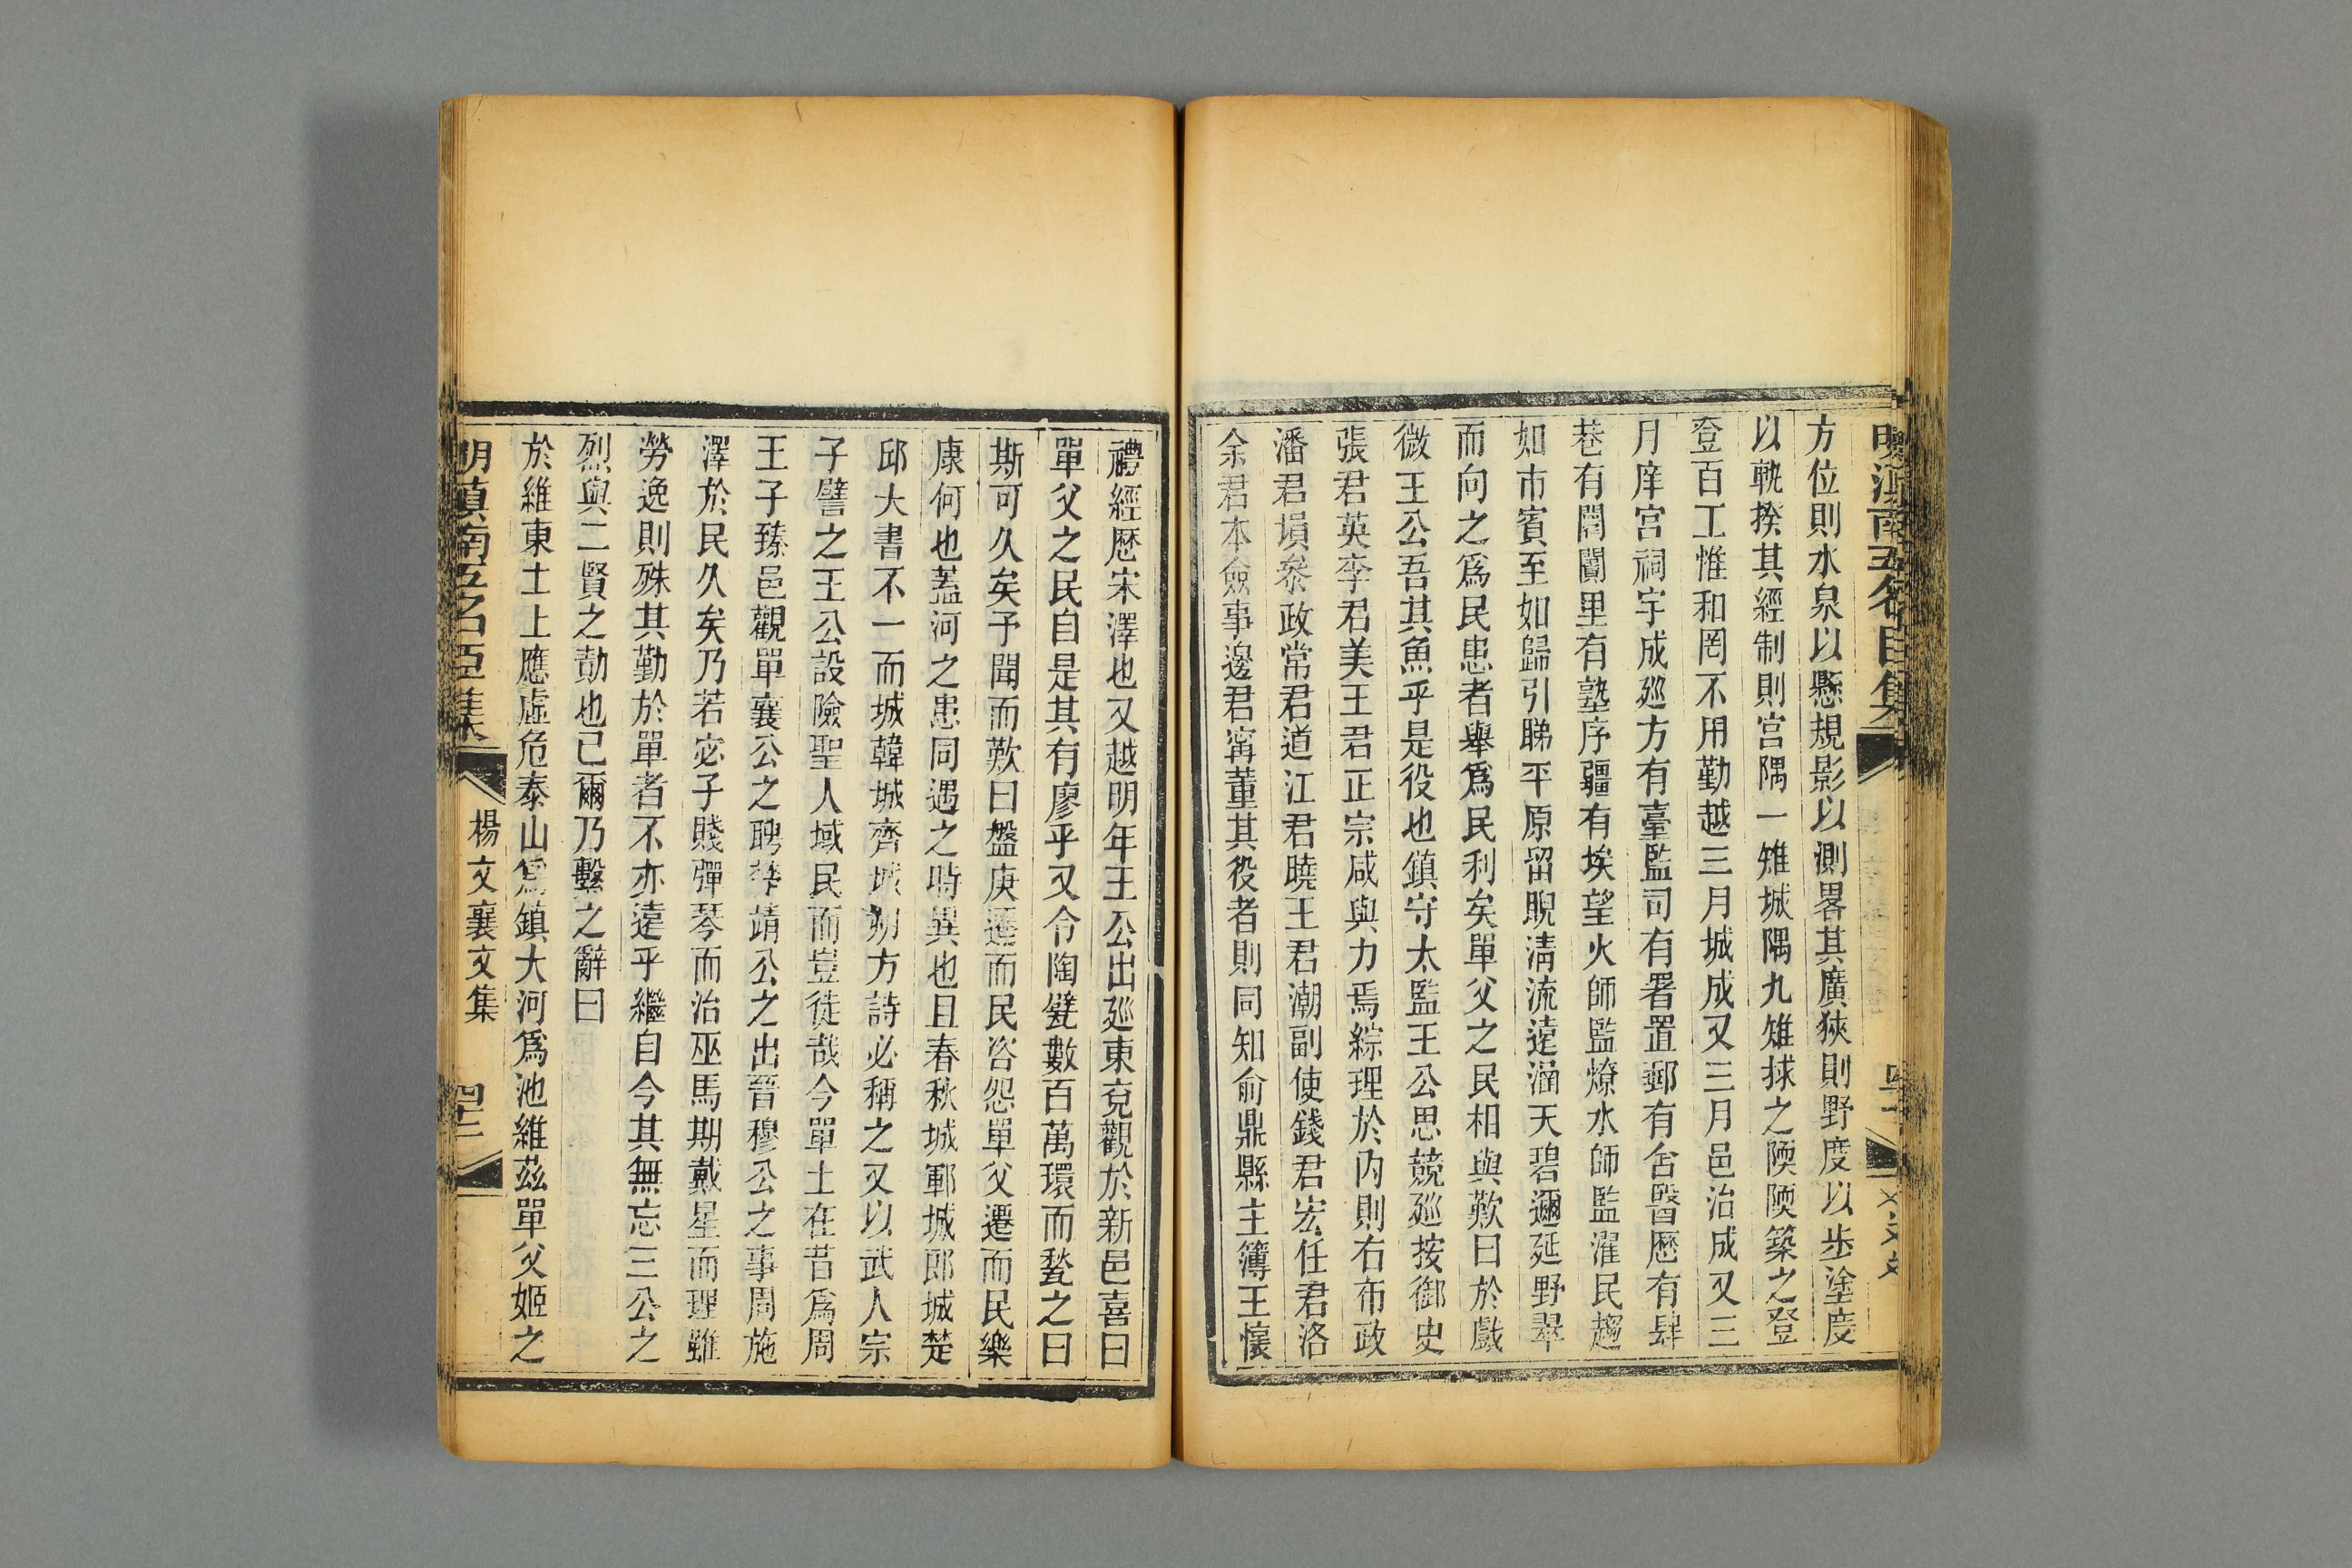 方位則水泉以懸規影以測畧其廣狹則野度以步塗度
以軌揆其經制則宮隅一雉城隅九雉捄之陾陾築之登
登百工惟和罔不用勤越三月城成又三月邑治成又三
月庠宮祠宇成廵方有臺監司有署置郵有舍醫歷有肆
巷有閭閈里有塾序疆有堠望火師監燎水師監濯民趨
如市賓至如歸引睇平原留睨清流遠涵天碧邇延野翠
而向之爲民患者舉爲民利矣單父之民相與歎曰於戲
微王公吾其魚乎是役也鎮守太監王公思兢廵按御史
張君英李君美王君正宗咸與力焉綜理於內則右布政
潘君塤叅政常君道江君曉王君潮副使錢君宏任君洛
余君本僉事邊君寗董其役者則同知俞鼎縣主簿王懷
禮經歷宋澤也又越明年王公出廵東兗觀於新邑喜曰
單父之民自是其有廖乎又令陶甓數百萬環而甃之曰
斯可久矣予聞而歎曰盤庚遷而民咨怨單父遷而民樂
康何也蓋河之患同遇之時異也且春秋城鄆城郎城楚
邱大書不一而城韓城齊城朔方詩必稱之又以武人宗
子譬之王公設險聖人域民而豈徒哉今單土在昔爲周
王子臻邑觀單襄公之聘單靖公之出晉穆公之事周施
澤於民久矣乃若宓子賤彈琴而治巫馬期戴星而理雖
勞逸則殊其勤於單者不亦遠乎繼自今其無忘三公之
烈與二賢之勣也已爾乃繫之辭曰
於維東土上應虛危泰山爲鎮大河爲池維茲單父姬之
明滇南五名臣集
楊文襄文集
四十二